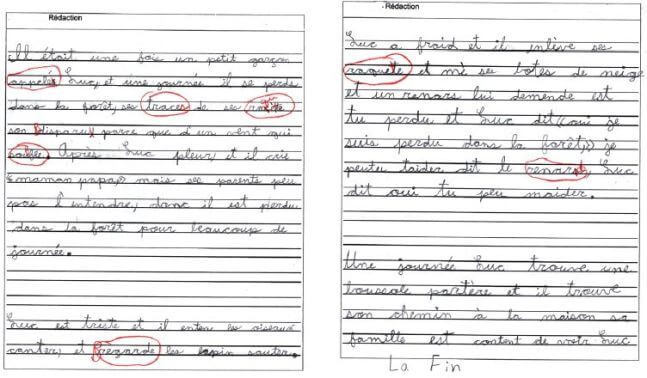 Rédaction
Il était une fois un petit garçon
appelé Luc, et une journée il se perds
dans la forêt, ses traces de ses
son disparu parce que d'un vent qui
Après Luc pleur, et il crie
«maman papa» mais ses parents peu
pas l'entendre, donc il est perdu
dans la forêt pour beaucoup de
journée.
Luc est triste et il enten les oiseaux
canter, et regarde les lapin sauter.
Rédaction
Luc a froid et il enlève ses
raquète et mè se botes de neige
et un renars lui demende est
tu perdu et Luc dit «oui je
suis perdu dans la forêt,» je
peuter taider dit le renard, Luc
dit oui tu peu maider.
Une journée Luc trouve une
boussole partère et il trouve
son chemin à la maison sa
famille est content de voir Luc
La Fin